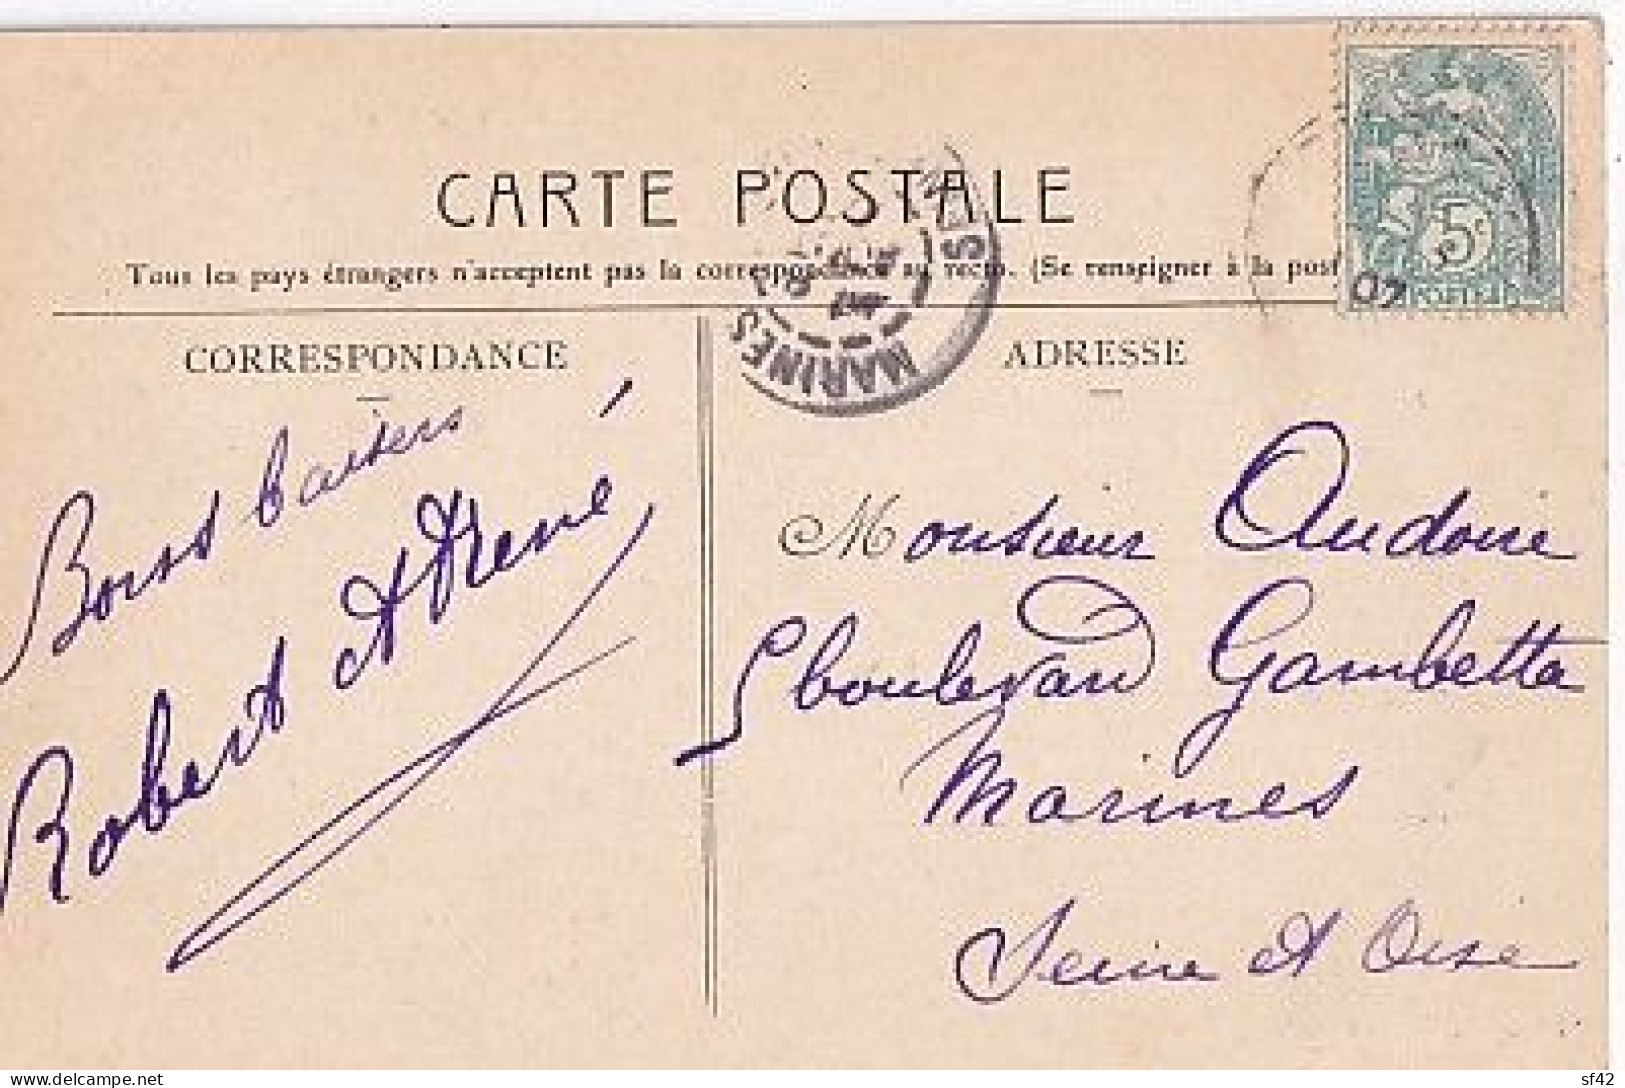 CARTE POSTALE
Tous les pays étrangers n'acceptent pas la correspondance au recto. (Se renseigner à la post
CORRESPONDANCE
ADRESSE
MARINES
07
5c
POSTES
Bonst baisers
Robert et René
Monsieur Audoire
boulevard Gambetta
Marines
Seine et Oise
delcampe.net
sf42